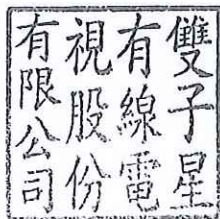 雙子星
有線電
視股份
有限公司